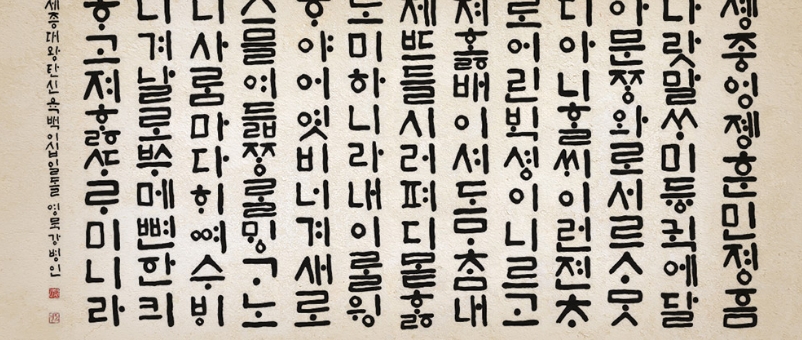 셰종엉졩훈민졍흠
나랏말ᄊᆞ미듕귁에달
아문ᄍᆞᆼ와로서르ᄉᆞᄆᆞᆺ
디아니ᄒᆞᆯᄊᆡ이런젼ᄎᆞ
로어린ᄇᆡᆨ셩이니르고
져ᄒᆞᇙ배이셔도ᄆᆞᄎᆞᆷ내
제ᄠᅳ들시러펴디몯ᄒᆞᇙ
노미하니라내이ᄅᆞᆯ윙
ᄒᆞ야어엿비너겨새로
스믈여듧ᄍᆞᆼᄅᆞᆯᄆᆡᇰᄀᆞ노
니사ᄅᆞᆷ마다ᄒᆡᅇᅧ수ᄫᅵ
니겨날로ᄡᅮ메뼌한킈
ᄒᆞ고져ᄒᆞᇙᄯᆞᄅᆞ미니라
세종대왕탄신육백이십일돌 영묵강병인